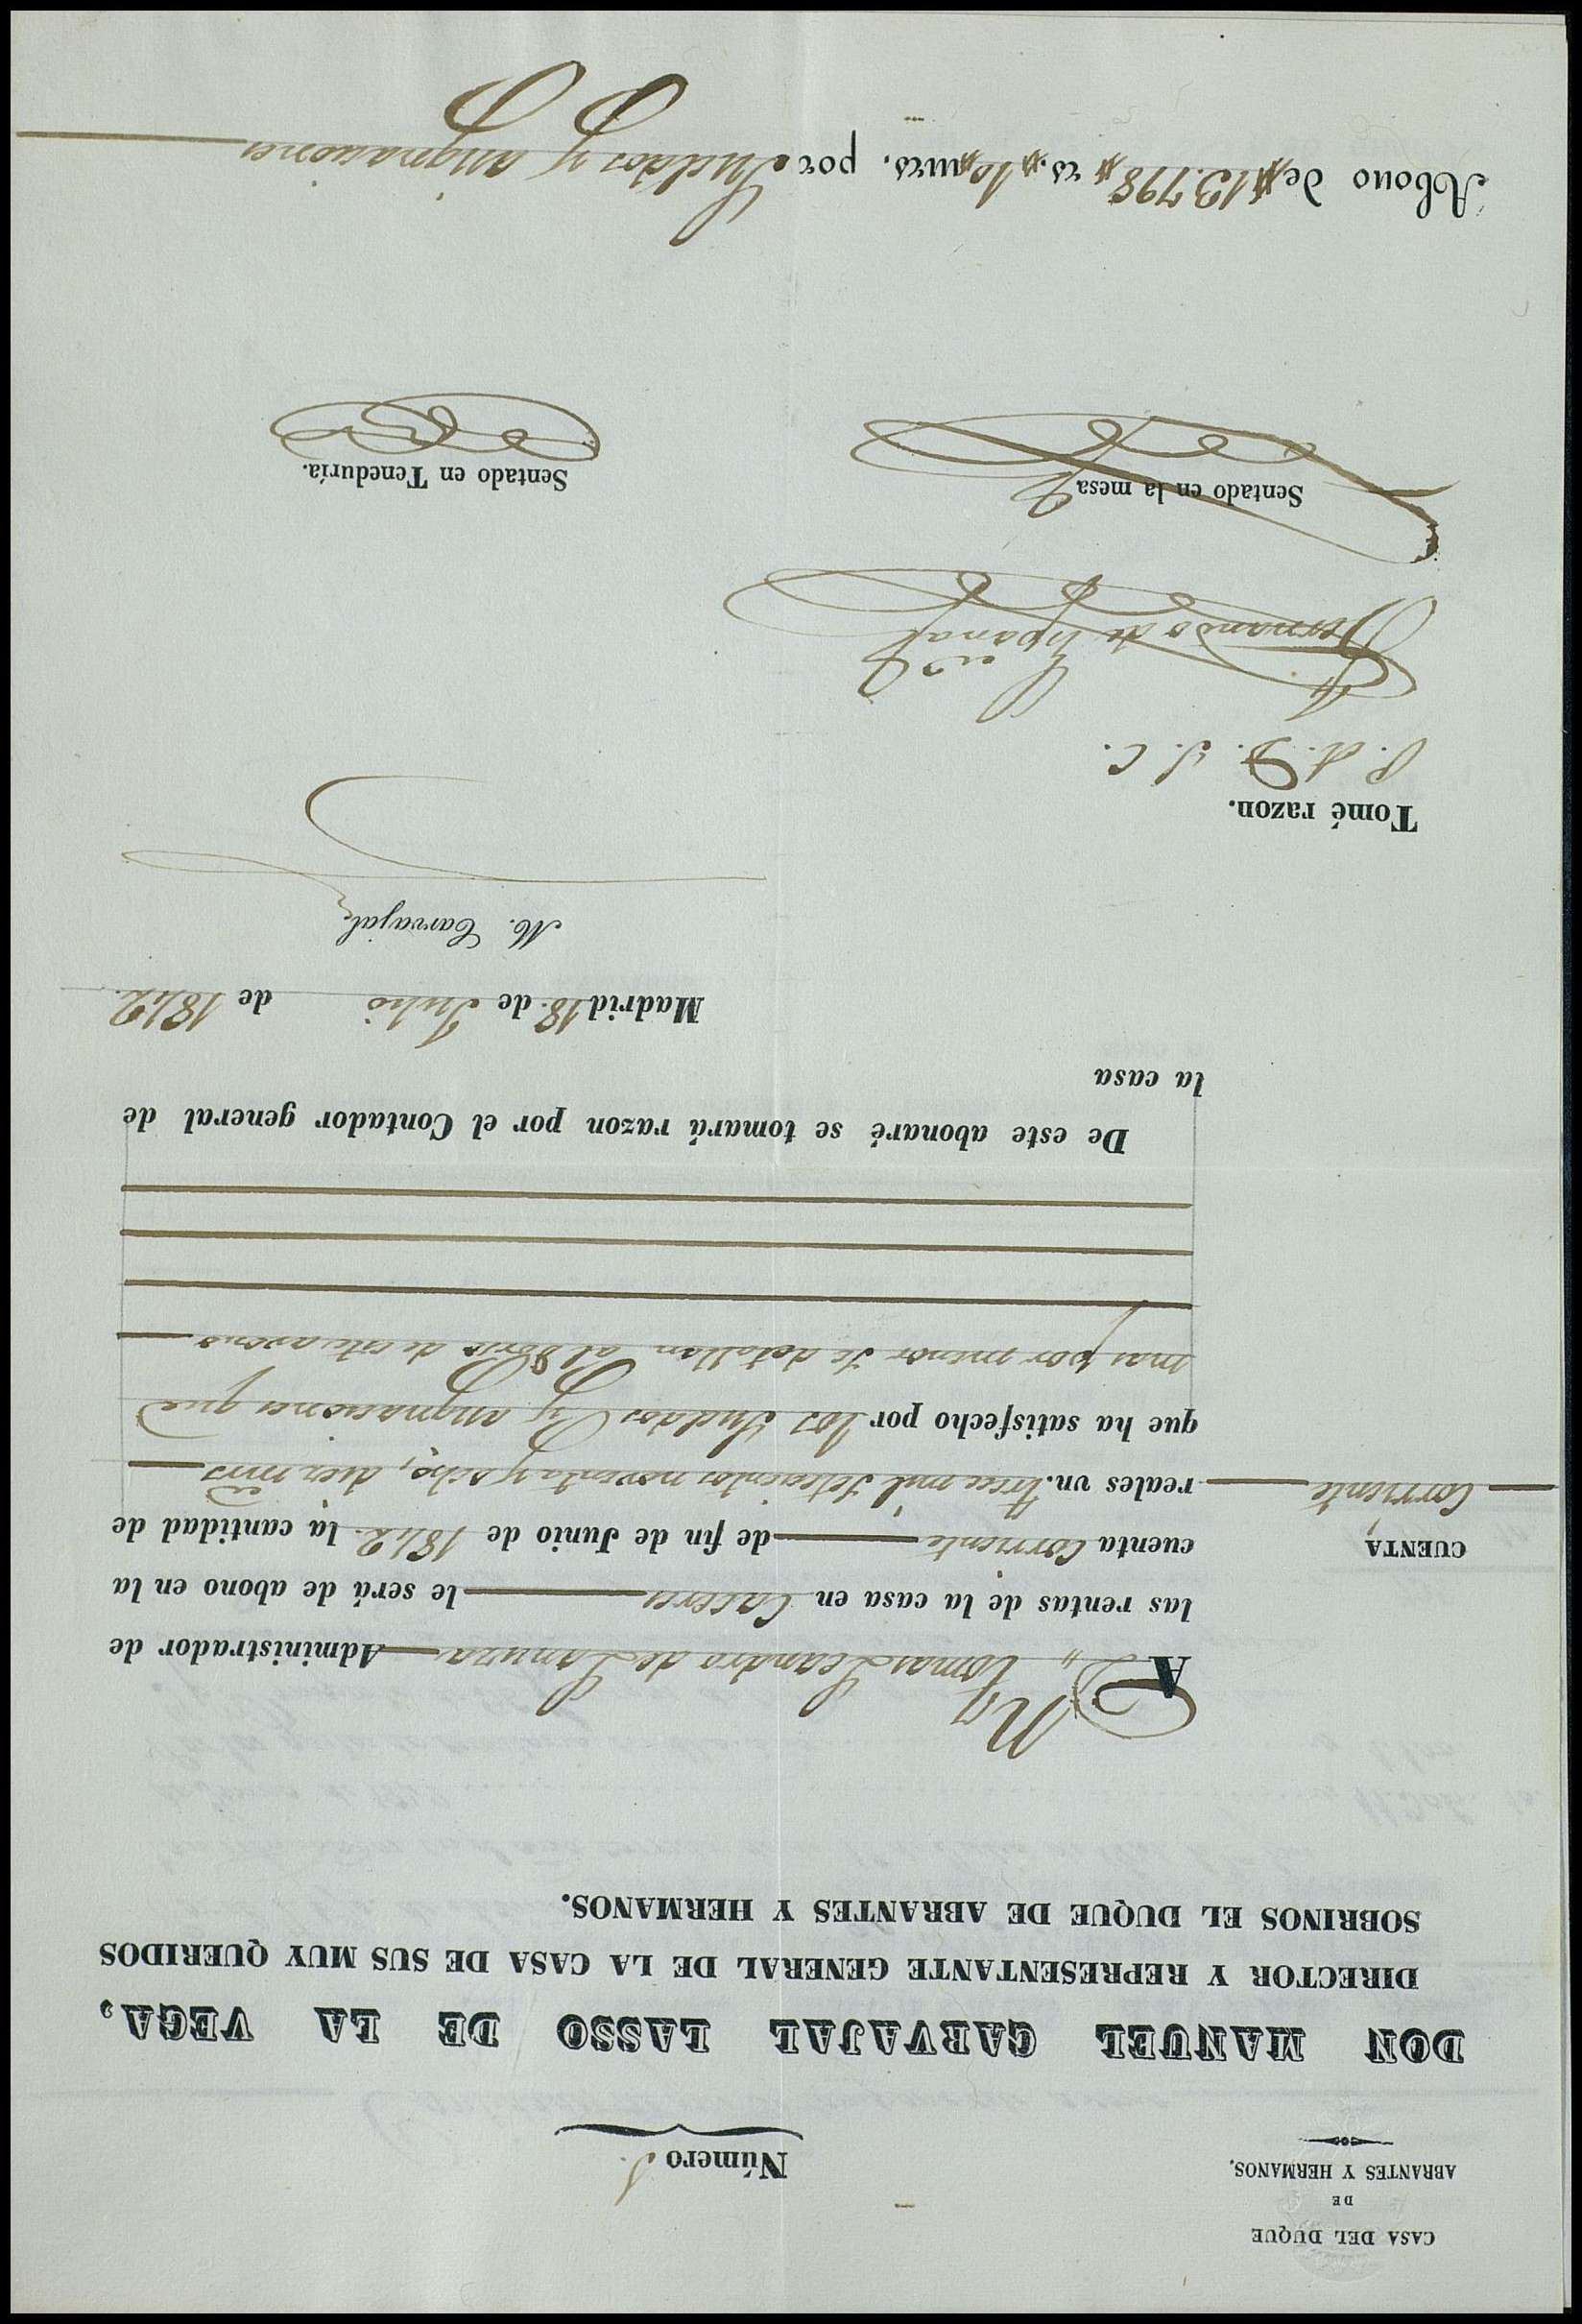 CASA DEL DUQUE
DE
ABRANTES Y HERMANOS.
Número
DON MANUEL CARVAJAL LASSO DE LA VEGA,
DIRECTOR Y REPRESENTANTE GENERAL DE LA CASA DE SUS MUY QUERIDOS
SOBRINOS EL DUQUE DE ABRANTES Y HERMANOS.
A Dn Tomas Leandro de Lanuza Administrador de
las rentas de la casa en Caceres le será de abono en la
CUENTA
cuenta Corriente de fin de Junio de 1842 la cantidad de
Corriente
reales vn. trece mil setecientos noventa y ocho, diez mrs
que ha satisfecho por los Sueldos y asignaciones que
mas por menor se detallan al dorso de este avono
De este abonaré se tomará razon por el Contador general de
la casa
Madrid 18 de Julio de 1842.
M. Carvajal
Tomé razon.
P. A. D. S. C.
Fernando de España
Sentado en la mesa
Sentado en Teneduría.
Abono de 13.798 rs. 10 mrs. por Sueldos y asignaciones